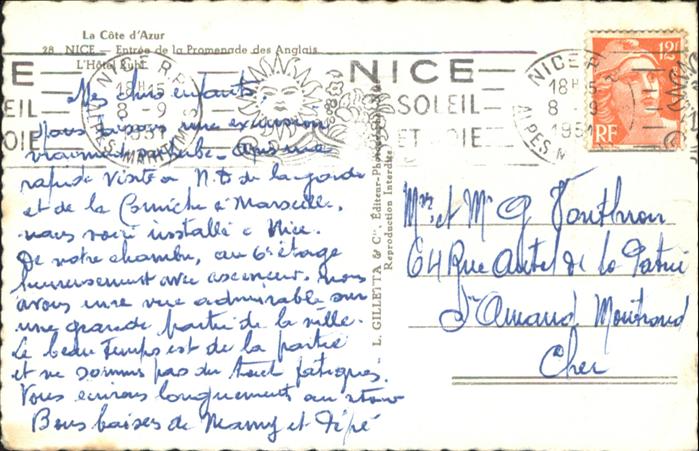 La Côte d'Azur
28 NICE — Entrée de la Promenade des Anglais
L'Hôtel Ruhl
NICE R.P
18H15
8-9
1951
ALPES-MARITIMES
NICE
SOLEIL
ET JOIE
NICE R.P
18H15
8-9
1951
ALPES-M
12F
RF
E
EIL
OIE
Mes chers enfants,
Nous faisons une excursion
vraiment superbe. Après une
rapide visite à N.D de la garde
et de la Corniche à Marseille,
nous voici installés à Nice.
De notre chambre, au 6e étage
heureusement avec ascenseur, nous
avons une vue admirable sur
une grande partie de la ville.
Le beau temps est de la partie
et ne sommes pas du tout fatigués.
Vous écrirons longuement au retour
Bons baisers de Mamy et Pépé
L. GILLETTA & Cie, Éditeur-Photographe
Reproduction Interdite
Mme et Mr G
64 Rue Autel de la Patrie
St Amand Montrond
Cher